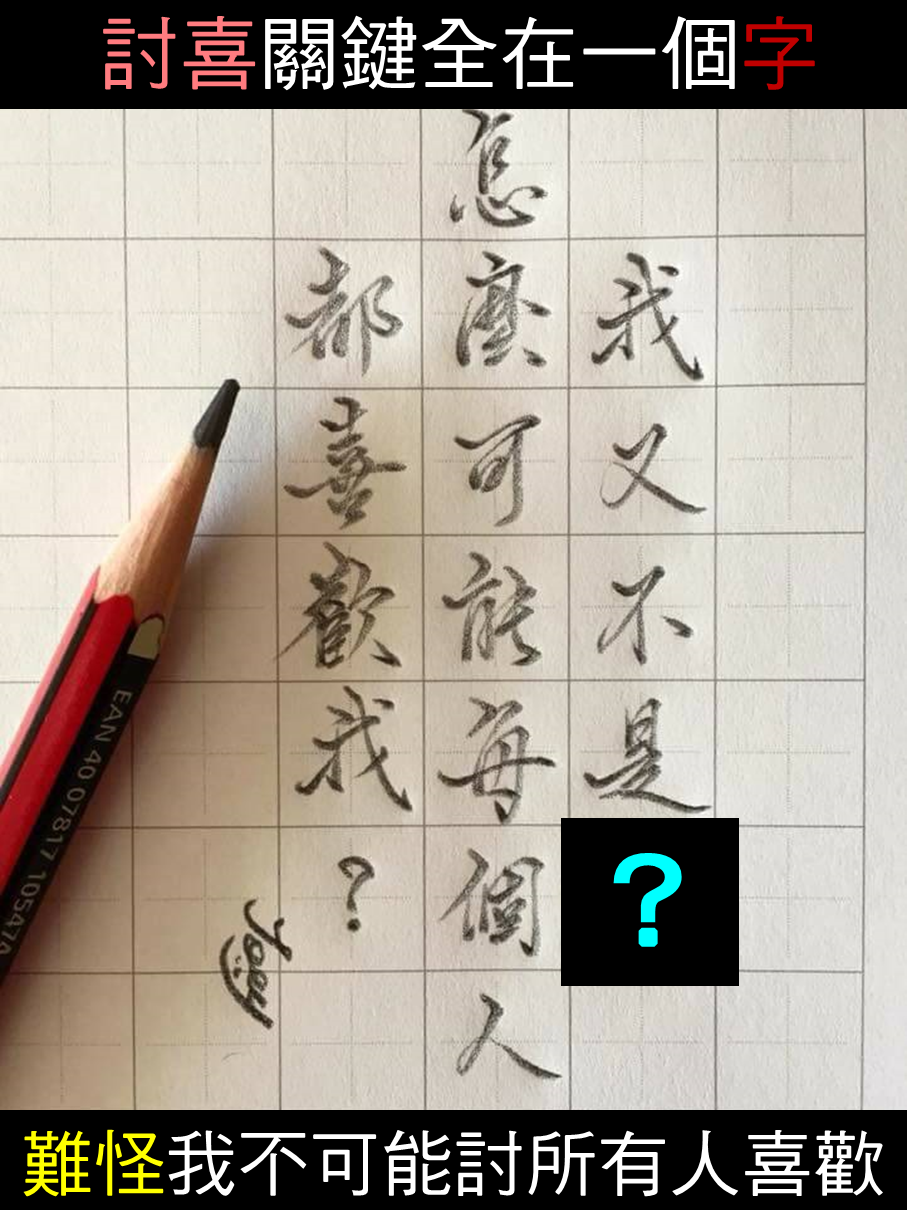 討喜關鍵全在一個字
我又不是?
怎麼可能每個人
都喜歡我?
Joey
EAN 40 07817 10547
難怪我不可能討所有人喜歡